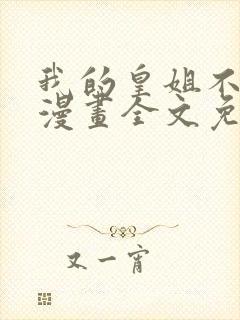 我的皇姐不
漫畫全文免
又一宵